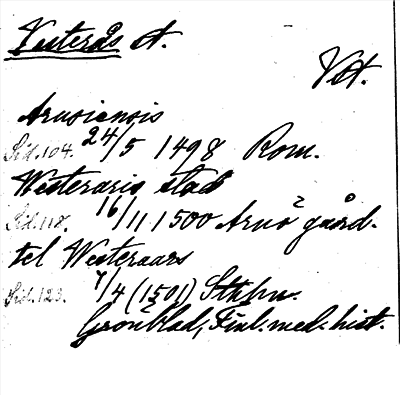 Västerås st.
Vst.
Arusiensis
Sid. 104. 24/5 1498 Rom.
Westeraris stad
Sid. 118. 16/11 1500 Arnö gård.
tel Westeraars
Sid. 123. 7/4 (1501) Sthlm.
Grönblad, Finl. med. hist.